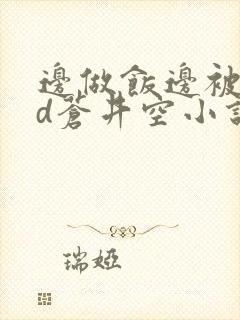 邊做飯邊被
d蒼井空小說
瑞婭